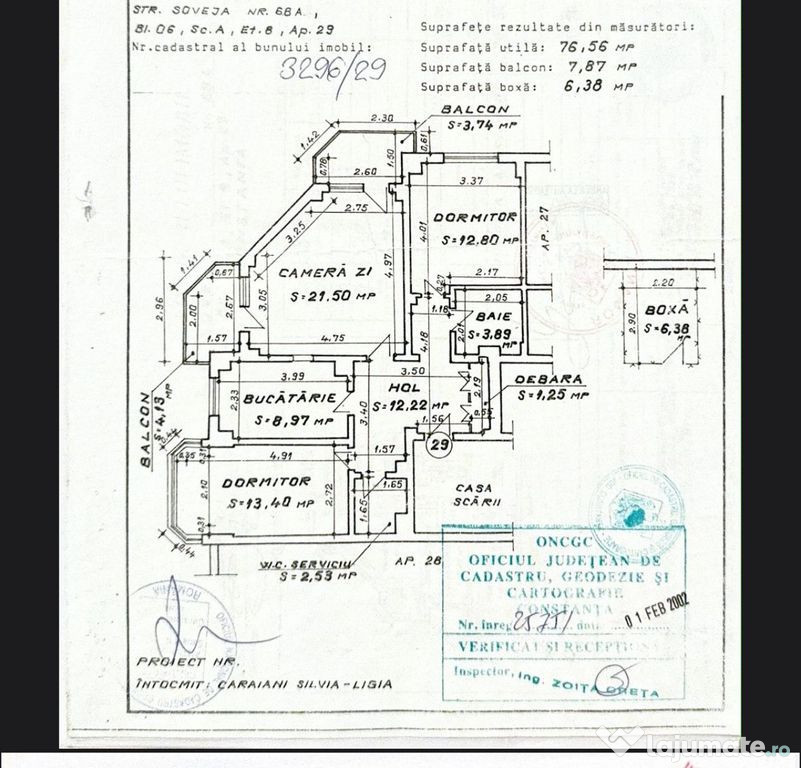 STR. SOVEJA NR. 68A,
Bl. O6, Sc. A, Et. 8, Ap. 29
Nr.cadastral al bunului imobil:
3296/29
Suprafețe rezultate din măsurători:
Suprafață utilă: 76,56 MP
Suprafață balcon: 7,87 MP
Suprafață boxă: 6,38 MP
BALCON
S=3,74 MP
2.30
1.42
0,78
1.50
0,61
2.60
2.75
3.25
3.37
DORMITOR
S=12.80 MP
4.01
4.97
AP. 27
1.41
0,67
2.96
2.00
2.67
3.05
CAMERĂ ZI
S=21.50 MP
0,27
2.17
1.18
2,05
BAIE
S=3,89 MP
2,01
2.20
BOXĂ
S=6,38 MP
2.90
1.57
4.75
4.18
BALCON
S=4,13 MP
3.99
BUCĂTĂRIE
S=8,97 MP
2.33
3.50
HOL
S=12,22 MP
3.40
2.19
DEBARA
S=1,25 MP
0.55
1.56
29
0,44
0,35
0,31
4.91
DORMITOR
S=13,40 MP
2.10
2.72
0.31
0,44
1.57
1.65
1.65
CASA
SCĂRII
W.C. SERVICIU
S=2,53 MP
AP. 28
ONCGC
OFICIUL JUDEȚEAN DE
CADASTRU, GEODEZIE ȘI
CARTOGRAFIE
CONSTANȚA
Nr. înreg 2575/ data 01 FEB 2002
VERIFICAT ȘI RECEPȚIONAT
Inspector, ing. ZOIȚA GRETA
ROMÂNIA
PROIECT NR.
ÎNTOCMIT: CARAIANI SILVIA-LIGIA
lajumate.ro